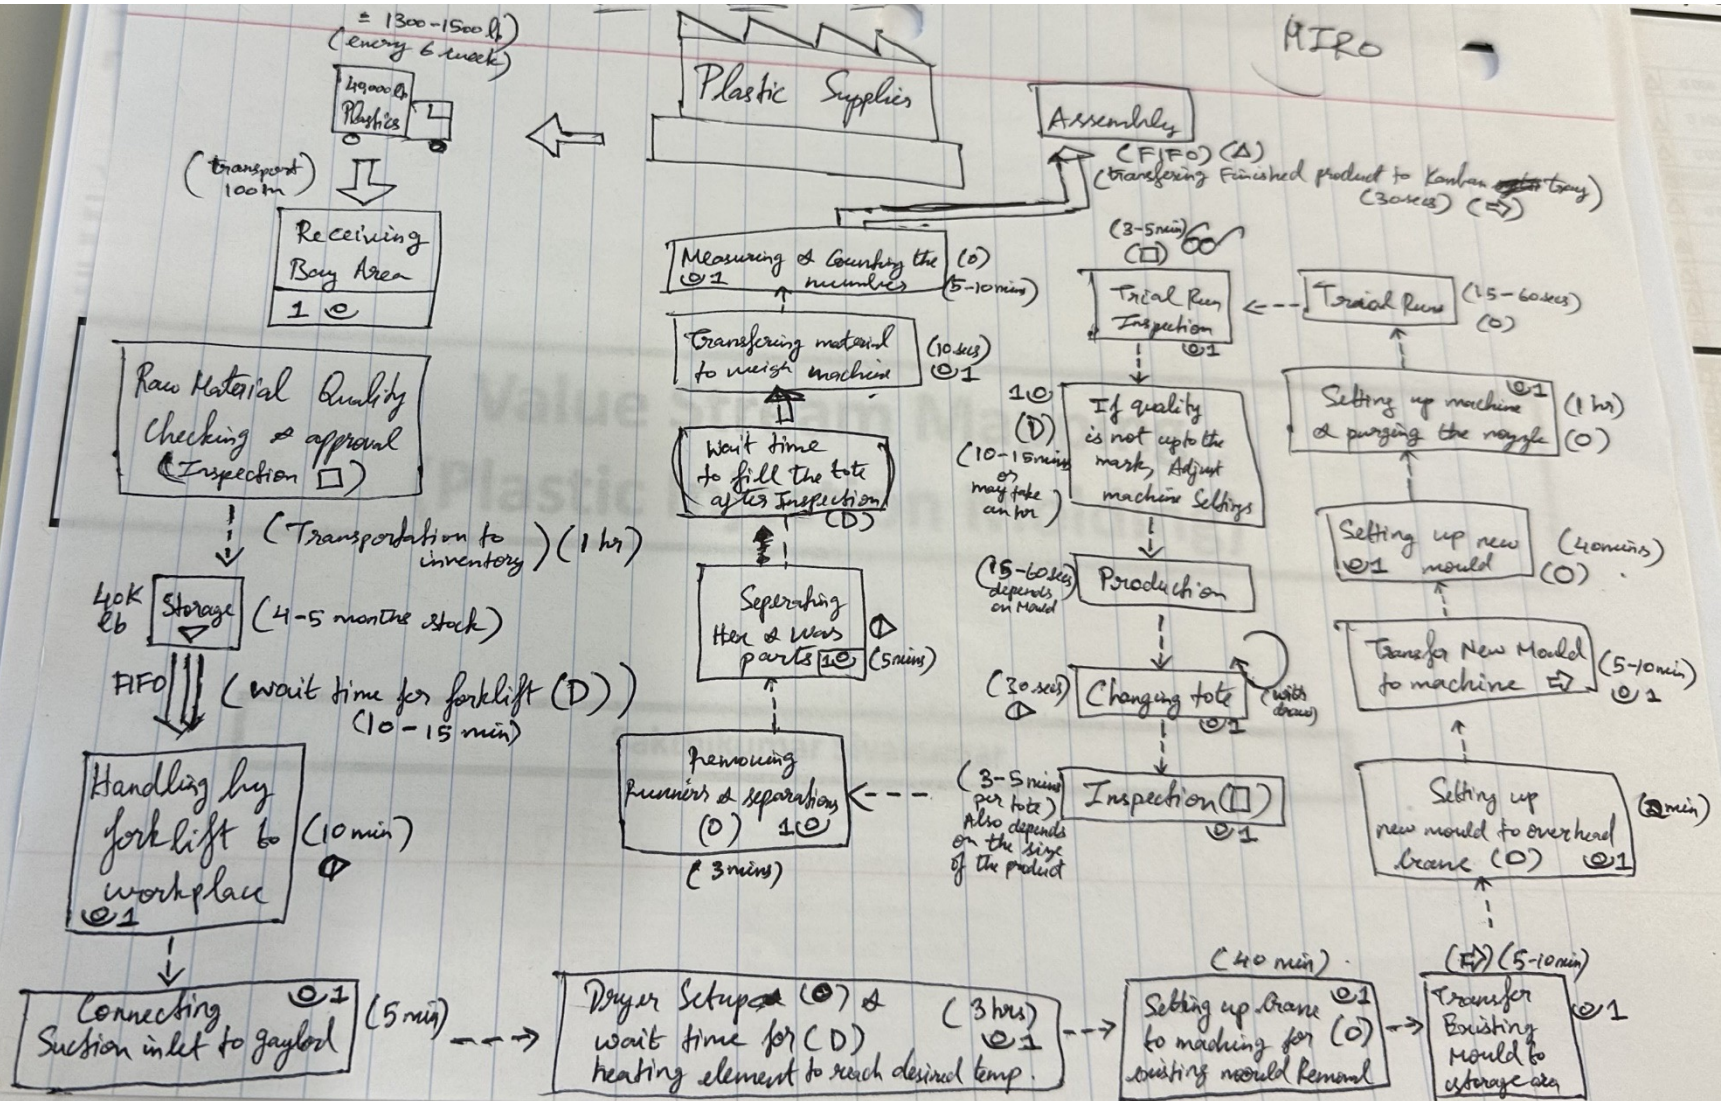 ± 1300-1500 lb)
(every 6 week)
40,000 lb
Plastics
Plastic Supplies
MIRO
Assembly
(FIFO) (Δ)
(transfering Finished product to Kanban tray)
(30secs) (⇨)
(transport
100m)
Receiving
Bay Area
1
Raw Material Quality
Checking & approval
(Inspection □)
(Transportation to
inventory) (1 hr)
40K
lb
Storage
▽
(4-5 months stock)
FIFO
(wait time for forklift (D))
(10-15 min)
Handling by
forklift to
workplace
1
(10 min)
Connecting
Suction inlet to gaylod
1
(5 min)
Dryer Setup (O) &
wait time for (D)
heating element to reach desired temp.
(3 hrs)
1
(40 min).
Setting up crane
to machine for (O)
existing mould Removal
1
(⇨) (5-10min)
Transfer
Existing
Mould to
storage area
1
Setting up
new mould to overhead
Crane (O)
1
min)
Transfer New Mould
to machine ⇨
(5-10min)
1
Setting up new
mould
1
(40mins)
(O)
Setting up machine
& purging the nozzle
1
(1 hr)
(O)
Trial Run
(15-60secs)
(O)
(3-5min)
(□)
Trial Run
Inspection
1
If quality
is not upto the
mark, Adjust
machine Settings
1
(D)
(10-15mins
or
may take
an hr)
Production
(15-60secs
depends
on Mould
Changing tote
1
(30 secs)
(with
draw)
Inspection (□)
1
(3-5mins
per tote)
Also depends
on the size
of the product
Removing
Runners & separations
(O) 1
(3 mins)
Seperating
Hex & Was
parts 1
(5mins)
Wait time
to fill the tote
after Inspection
(D)
Transfering material
to weigh machine
(10 secs)
1
Measuring & Counting the
number
1
(O)
(5-10mins)
Value Stream Ma
Plastic
Sakthikumar Sivakumar